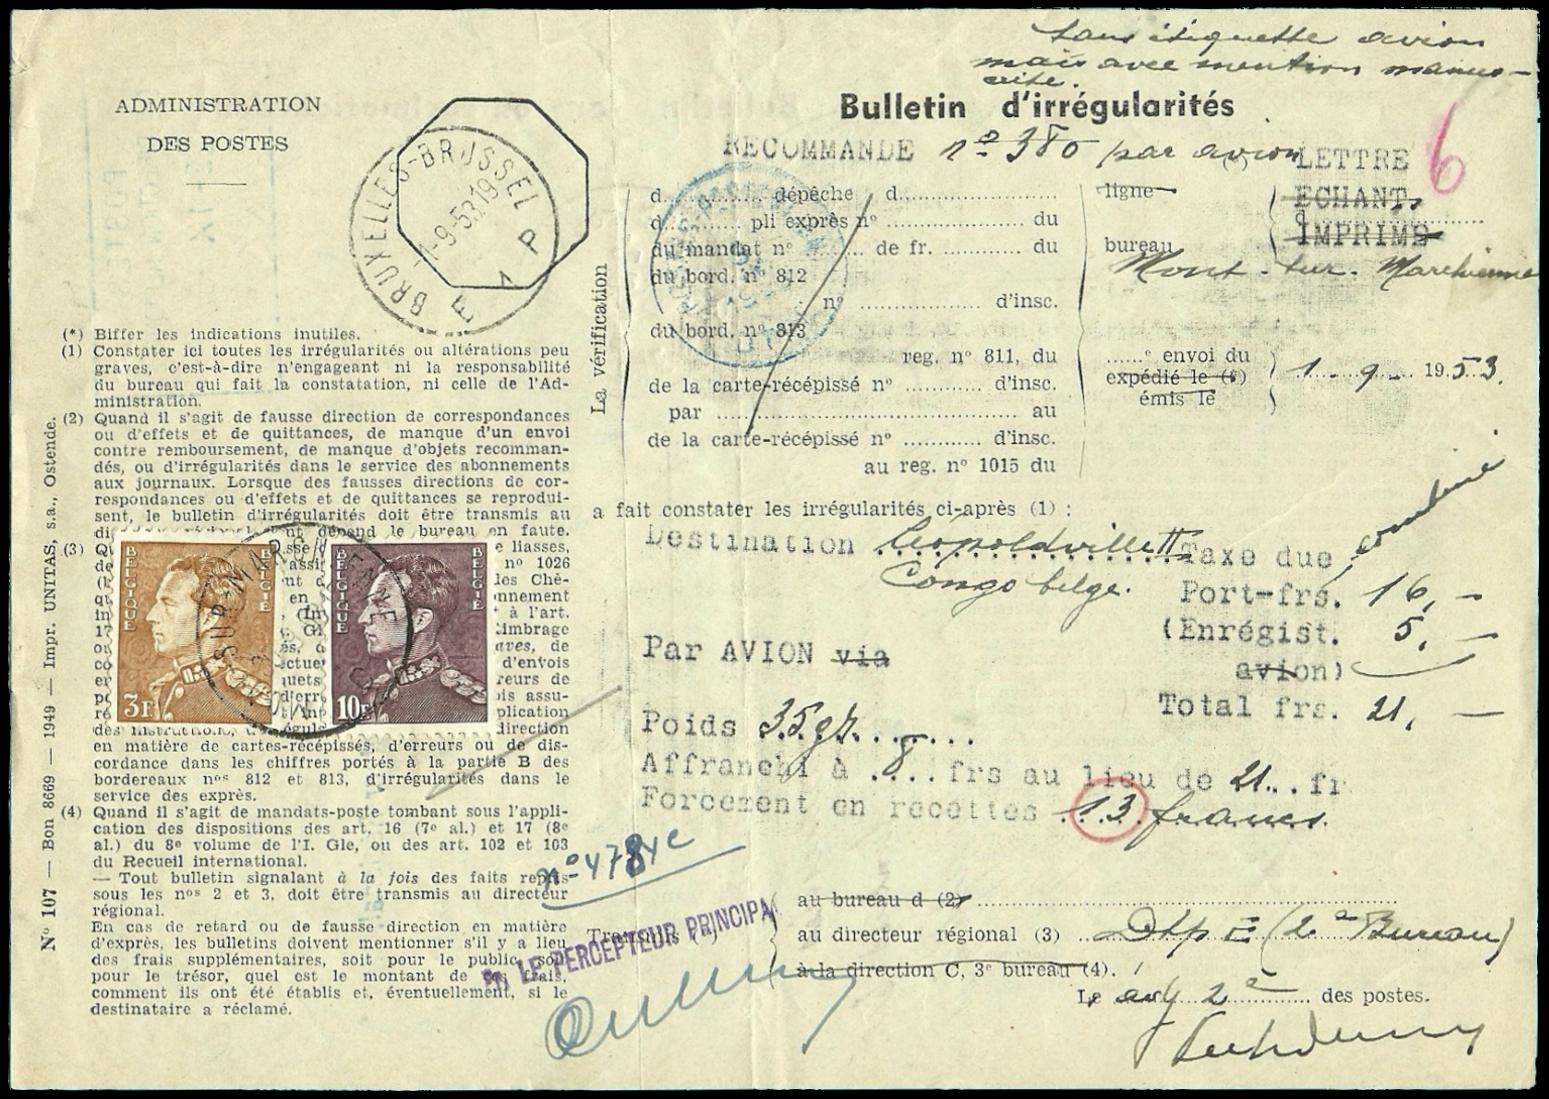 sans étiquette avion
mais avec mention manus-
crite.
ADMINISTRATION
DES POSTES
Bulletin d'irrégularités
RECOMMANDE nº 380 par avion
LETTRE
ECHANT.
IMPRIMÉ
6
BRUXELLES-BRUSSEL
1-9-53 19
E 1 P
La vérification
d............ dépêche d............
d............ pli exprès nº ............ du
du mandat nº ........ de fr. ........ du
du bord. nº 812
nº ............ d'insc.
du bord. nº 813
reg. nº 811, du
de la carte-récépissé nº ............ d'insc.
par ............ au
de la carte-récépissé nº ............ d'insc.
au reg. nº 1015 du
ligne
bureau
Mont-sur-Marchienne
......e envoi du
expédié le
émis le
1-9-1953.
(*) Biffer les indications inutiles.
(1) Constater ici toutes les irrégularités ou altérations peu
graves, c'est-à-dire n'engageant ni la responsabilité
du bureau qui fait la constatation, ni celle de l'Ad-
ministration.
(2) Quand il s'agit de fausse direction de correspondances
ou d'effets et de quittances, de manque d'un envoi
contre remboursement, de manque d'objets recomman-
dés, ou d'irrégularités dans le service des abonnements
aux journaux. Lorsque des fausses directions de cor-
respondances ou d'effets et de quittances se reprodui-
sent, le bulletin d'irrégularités doit être transmis au
dépend le bureau en faute.
(3)
liasses,
nº 1026
à l'art.
timbrage
aves, de
d'envois
reurs de
assu-
plication
direction
en matière de cartes-récépissés, d'erreurs ou de dis-
cordance dans les chiffres portés à la partie B des
bordereaux nos 812 et 813, d'irrégularités dans le
service des exprès.
(4) Quand il s'agit de mandats-poste tombant sous l'appli-
cation des dispositions des art. 16 (7e al.) et 17 (8e
al.) du 8e volume de l'I. Gle, ou des art. 102 et 103
du Recueil international.
— Tout bulletin signalant à la fois des faits repris
sous les nos 2 et 3, doit être transmis au directeur
régional.
En cas de retard ou de fausse direction en matière
d'exprès, les bulletins doivent mentionner s'il y a lieu
des frais supplémentaires, soit pour le public, soit
pour le trésor, quel est le montant de ces frais,
comment ils ont été établis et, éventuellement, si le
destinataire a réclamé.
Nº 107 — Bon 8669 — 1949 — Impr. UNITAS, s.a., Ostende.
BELGIQUE BELGIË
3F
BELGIQUE BELGIË
10F
a fait constater les irrégularités ci-après (1) :
Destination Léopoldville
Congo belge.
Par AVION via
Poids 35 gr.
Affranchi à 8 frs au lieu de 21 fr
Forcement en recettes 13 francs.
Taxe due
Port-frs. 16,-
(Enrégist. 5,-
avion)
Total frs. 21,-
nº 4784c
LE PERCEPTEUR PRINCIPA
Transmis
au bureau d (2)
au directeur régional (3) Dtp E (2e Bureau)
à la direction C, 3e bureau (4).
Le 2e des postes.